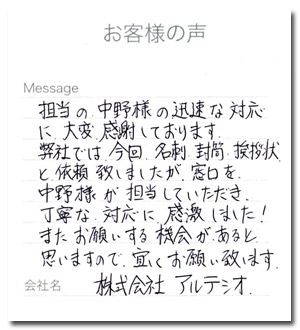 お客様の声
Message
担当の中野様の迅速な対応
に大変感謝しております。
弊社では今回、名刺、封筒、挨拶状
と依頼致しましたが、窓口を
中野様が担当していただき、
丁寧な対応に感激しました!
またお願いする機会があると
思いますので、宜くお願い致します。
会社名 株式会社 アルテシオ.